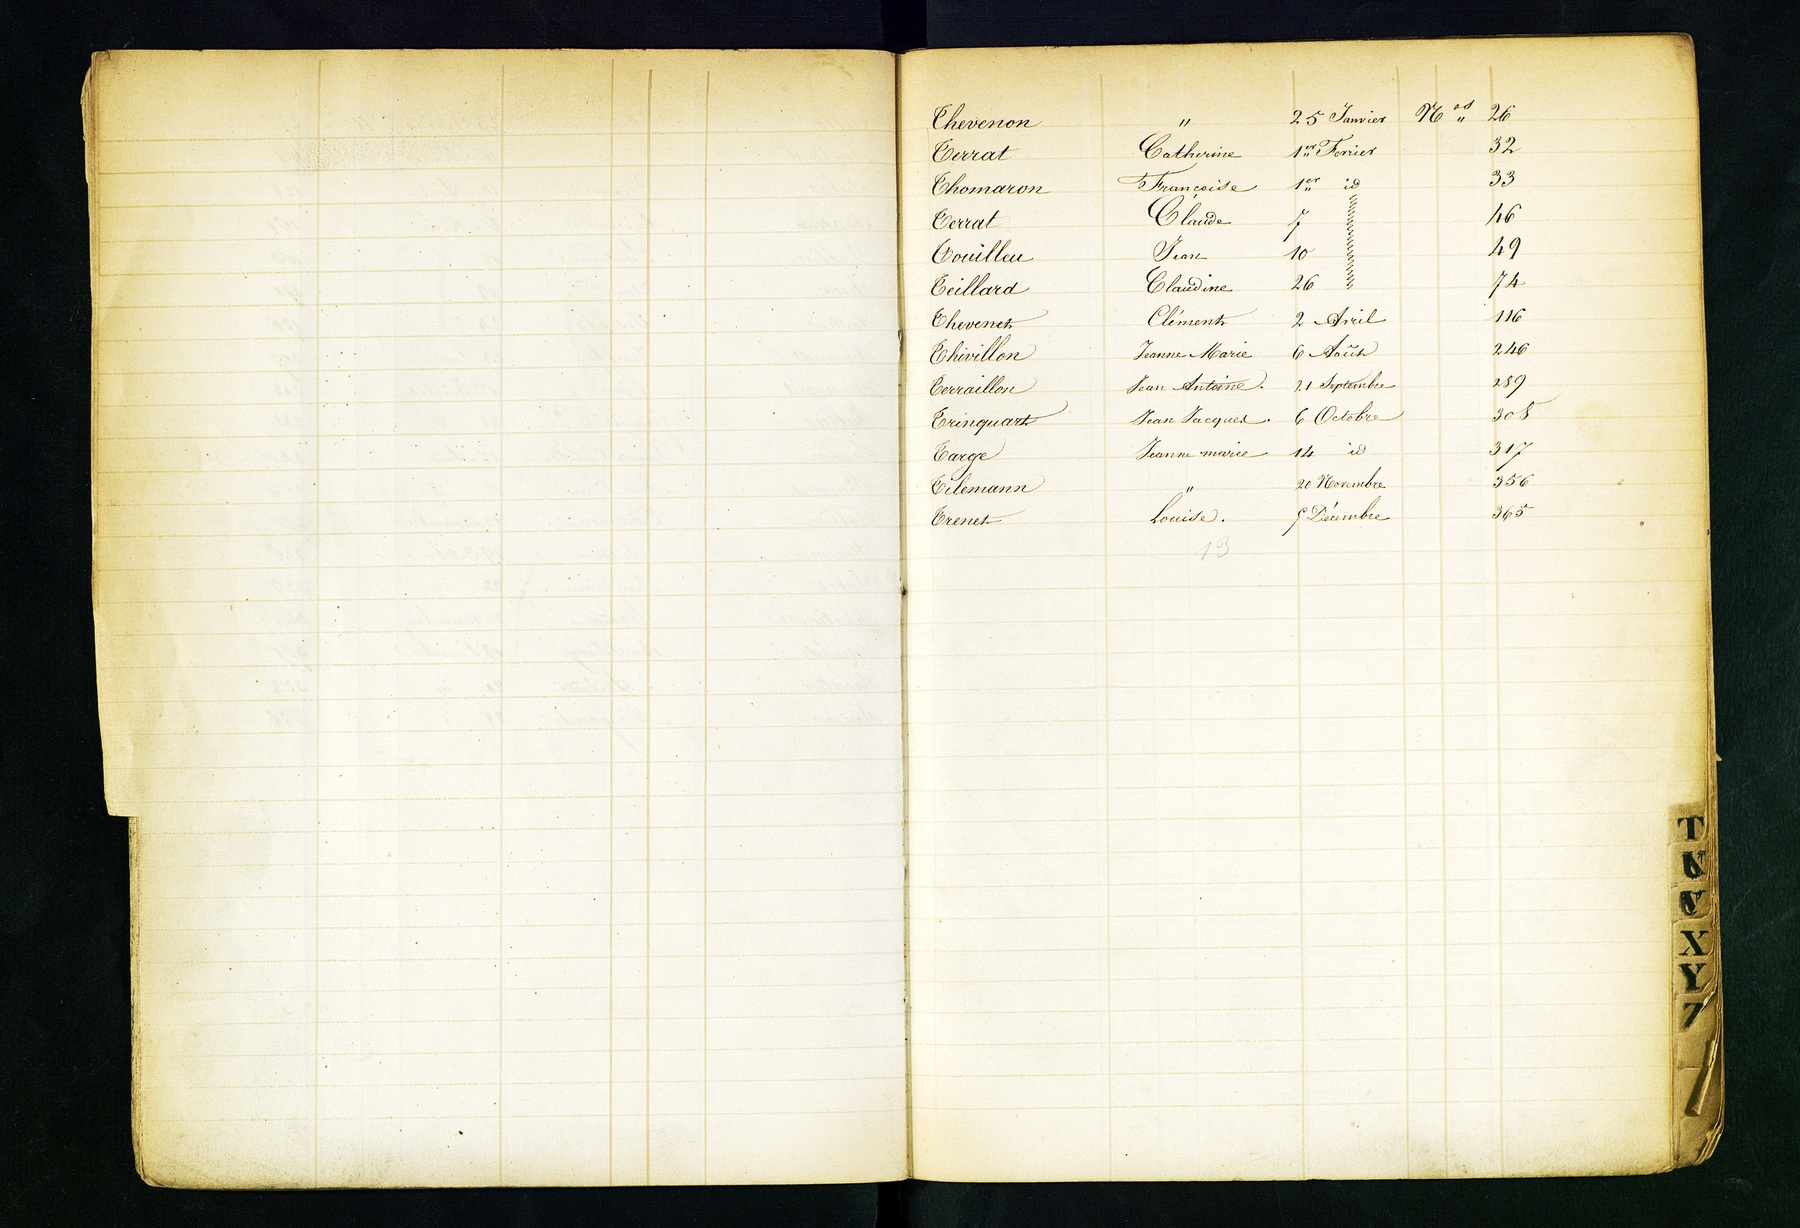 Thevenon " 25 Janvier Nos " 26
Terrat Catherine 1er Fevrier 32
Thomaron Françoise 1er id 33
Terrat Claude 7 " 46
Touilleu Jean 10 " 49
Teillard Claudine 26 " 74
Thevenet Clément 2 Avril 116
Thivillon Jeanne Marie 6 Août 246
Terraillon Jean Antoine. 21 Septembre 289
Trinquart Jean Jacques. 6 Octobre 308
Targe Jeanne marie 14 id 317
Tilemann " 20 Novembre 356
Trenet Louise. 5 Décembre 365
13
T
U
V
X
Y
Z